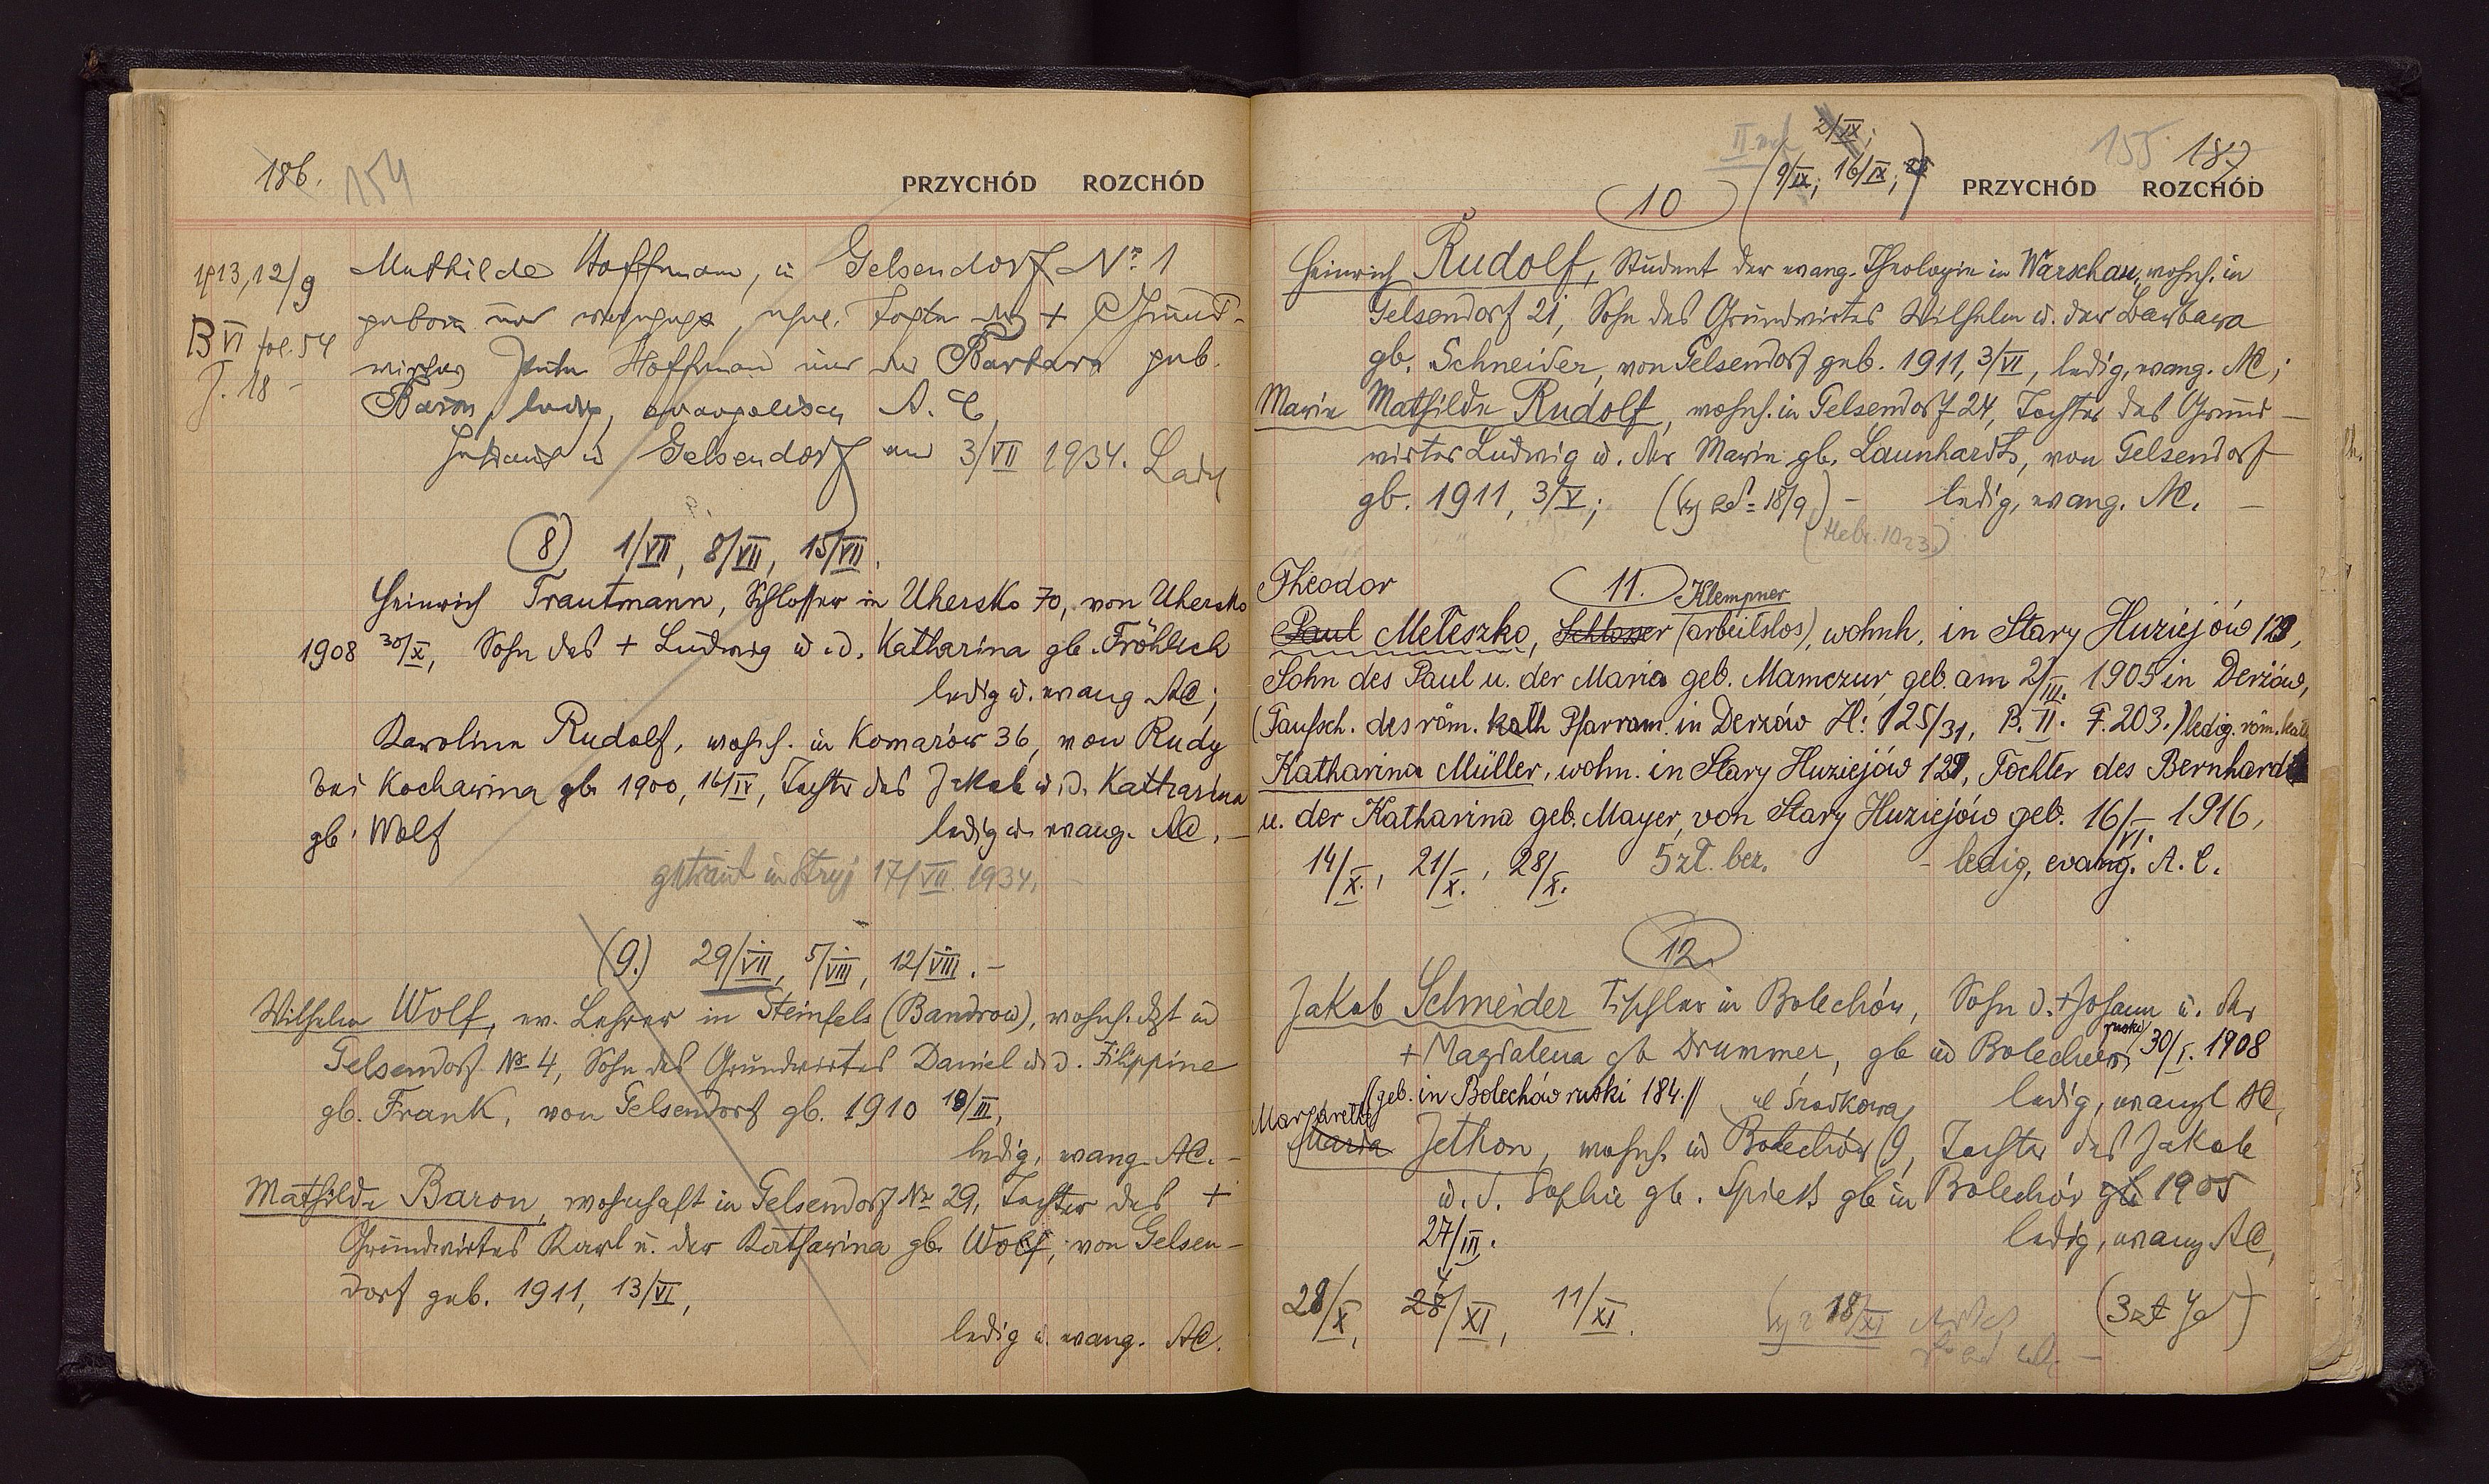 186. 154
PRZYCHÓD ROZCHÓD
1913, 12/9 Mathilde Hoffmann, in Gelsendorf No 1
B VI fol. 54
J. 18 -
geboren und wohnhaft, ehel. Tochter des + Grund-
wirtes Hoffmann und der Barbara geb.
Baron, ledig, evangelisch A. C.
Getraut in Gelsendorf am 3/VII 1934. Lady
(8) 1/VII, 8/VII, 15/VII.
Heinrich Trautmann, Schlosser in Uhersko 70, von Uhersko
1908 30/X, Sohn des + Ludwig u. d. Katharina gb. Fröhlich
ledig u. evang AC;
Karoline Rudolf, wohnh. in Komarów 36, von Rudy
bei Kochawina gb 1900, 16/IV, Tochter des Jakob u. d. Katharina
gb. Wolf ledig u. evang. AC. -
getraut in Stryj 17/VII. 1934.
(9.) 29/VII, 5/VIII, 12/VIII. -
Wilhelm Wolf, ev. Lehrer in Steinfels (Bandrow), wohnh. dzt in
Gelsendorf No 4, Sohn des Grundwirtes Daniel u. d. Filippine
gb. Frank, von Gelsendorf gb. 1910 18/III,
ledig, evang. AC. -
Mathilde Baron, wohnhaft in Gelsendorf No 29, Tochter des +
Grundwirtes Karl u. der Katharina gb. Wolf, von Gelsen-
dorf geb. 1911, 13/VI,
ledig u. evang. AC.
155 187
2/IX;
9/IX; 16/IX;
PRZYCHÓD ROZCHÓD
10
Heinrich Rudolf, Student der evang. Theologie in Warschau, wohnh. in
Gelsendorf 21, Sohn des Grundwirtes Wilhelm u. der Barbara
gb. Schneider, von Gelsendorf geb. 1911, 3/VI, ledig, evang. AC;
Marie Mathilde Rudolf, wohnh. in Gelsendorf 24, Tochter des Grund-
wirtes Ludwig u. der Marie gb. Launhardt, von Gelsendorf
gb. 1911, 3/V; 18/9) - ledig, evang. AC. -
(Hebr. 10 23)
Theodor 11. Klempner
Paul Meteszko, Schlosser (arbeitslos), wohnh. in Stary Huziejów 129,
Sohn des Paul u. der Maria geb. Mamczur, geb. am 2/III. 1905 in Derżów,
(Taufsch. des röm. kath Pfarram. in Derżów H: 125/31, B. II. F. 203.) ledig. röm. kath
Katharina Müller, wohn. in Stary Huziejów 129, Tochter des Bernhard
u. der Katharina geb. Mayer, von Stary Huziejów geb. 16/VI. 1916,
14/X., 21/X., 28/X. 5 zł. bez. - ledig, evang. A. C.
12.
Jakob Schneider Tischler in Bolechów, Sohn d. + Johann u. der
+ Magdalena gb Drummer, gb in Bolechów ruski, 30/I. 1908
(geb. in Bolechów ruski 184.) ledig, evangl AC,
Margarethe ul Środkowa
Maria Jethon, wohnh. in Bolechów 19, Tochter des Jakob
u. d. Sophie gb. Spieß gb in Bolechów gb 1905
27/III. ledig, evang AC,
28/X, 28 4/XI, 11/XI. 18/XI